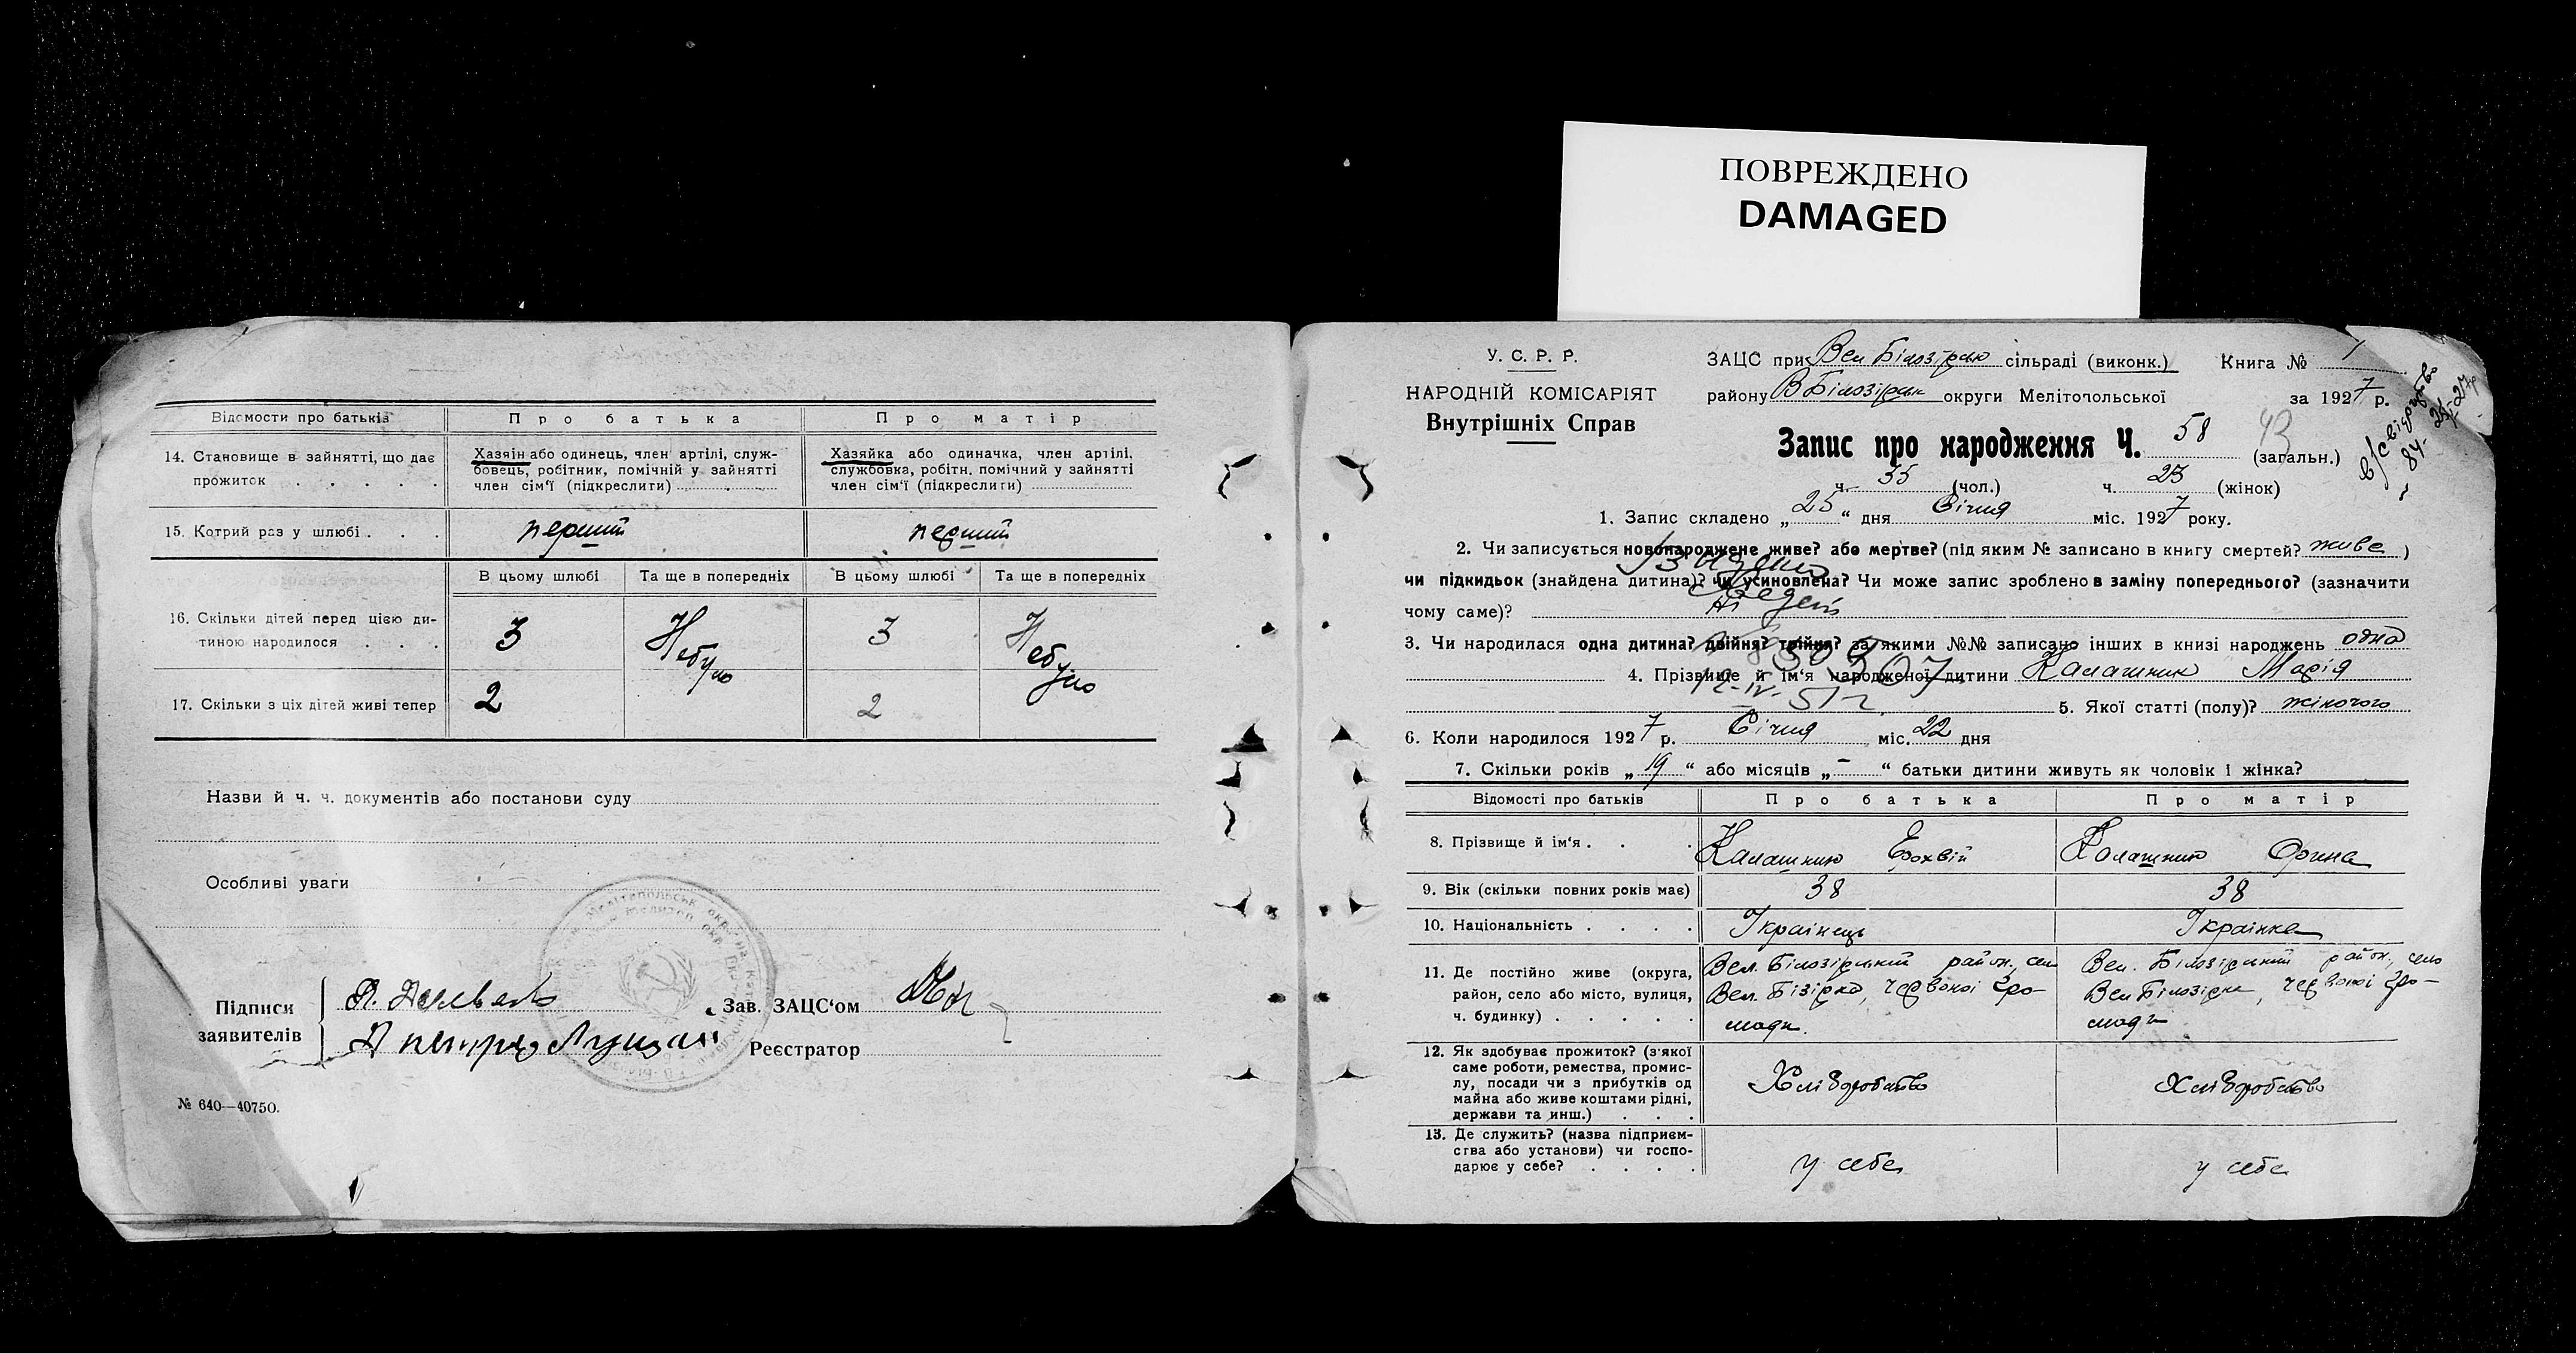 ПОВРЕЖДЕНО
DAMAGED
Відомости про батьків
Про батька
Про матір
14. Становище в зайнятті, що дає прожиток . . . . .
Хазяін або одинець, член артілі, служ-
бовець, робітник, помічній у зайнятті
член сім'ї (підкреслити)
Хазяйка або одиначка, член артілі,
службовка, робітн. помічний у зайнятті
член сім'ї (підкреслити)
15. Котрий раз у шлюбі . . .
перший
перший
В цьому шлюбі
Та ще в попередніх
В цьому шлюбі
Та ще в попередніх
16. Скільки дітей перед цією ди-
тиною народилося . . .
3
Не було
3
Не було
17. Скільки з ціх дітей живі тепер
2
2
Назви й ч. ч. документів або постанови суду
Особливі уваги
Підписи
заявителів
Зав. ЗАЦС'ом
Реєстратор
№ 640—40750.
У. С. Р. Р.
НАРОДНІЙ КОМІСАРІЯТ
Внутрішніх Справ
ЗАЦС при Вел Білозірсью сільраді (виконк.) Книга № 1
району ВБілозірськ округи Мелітопольської за 1927 р.
Запис про народження Ч. 58 (загальн.)
43
ч. 35 (чол.) ч. 23 (жінок)
1. Запис складено „ 25 “ дня Січня міс. 1927 року.
2. Чи записується новонароджене живе? або мертве? (під яким № записано в книгу смертей? живе )
чи підкидьок (знайдена дитина)? чи усиновлена? Чи може запис зроблено в заміну попереднього? (зазначити
чому саме)?
3. Чи народилася одна дитина? двійня? трійня? за якими №№ записано інших в книзі народжень одна
4. Прізвище й ім'я народженої дитини Калашник Марія
12-IV-51 г.
5. Якої статті (полу)? жіночого
6. Коли народилося 1927 р. Січня міс. 22 дня
7. Скільки років „ 19 “ або місяців „ - “ батьки дитини живуть як чоловік і жінка?
Відомості про батьків
Про батька
Про матір
8. Прізвище й ім'я . . .
Калашник Єрохвій
Калашник Орина
9. Вік (скільки повних років має)
38
38
10. Національність . . . .
Українець
Українка
11. Де постійно живе (округа,
район, село або місто, вулиця,
ч. будинку) . . . . .
Вел. Білозірський район, село
Вел. Бізірка, червоної гро-
мади.
Вел. Білозірський район, село
Вел Білозірка, червоної гро-
мади
12. Як здобуває прожиток? (з'якої
саме роботи, ремества, промис-
лу, посади чи з прибутків од
майна або живе коштами рідні,
держави та инш.) . . .
Хліборобство
Хліборобство
13. Де служить? (назва підприєм-
ства або установи) чи госпо-
дарює у себе? . . . .
у себе
у себе